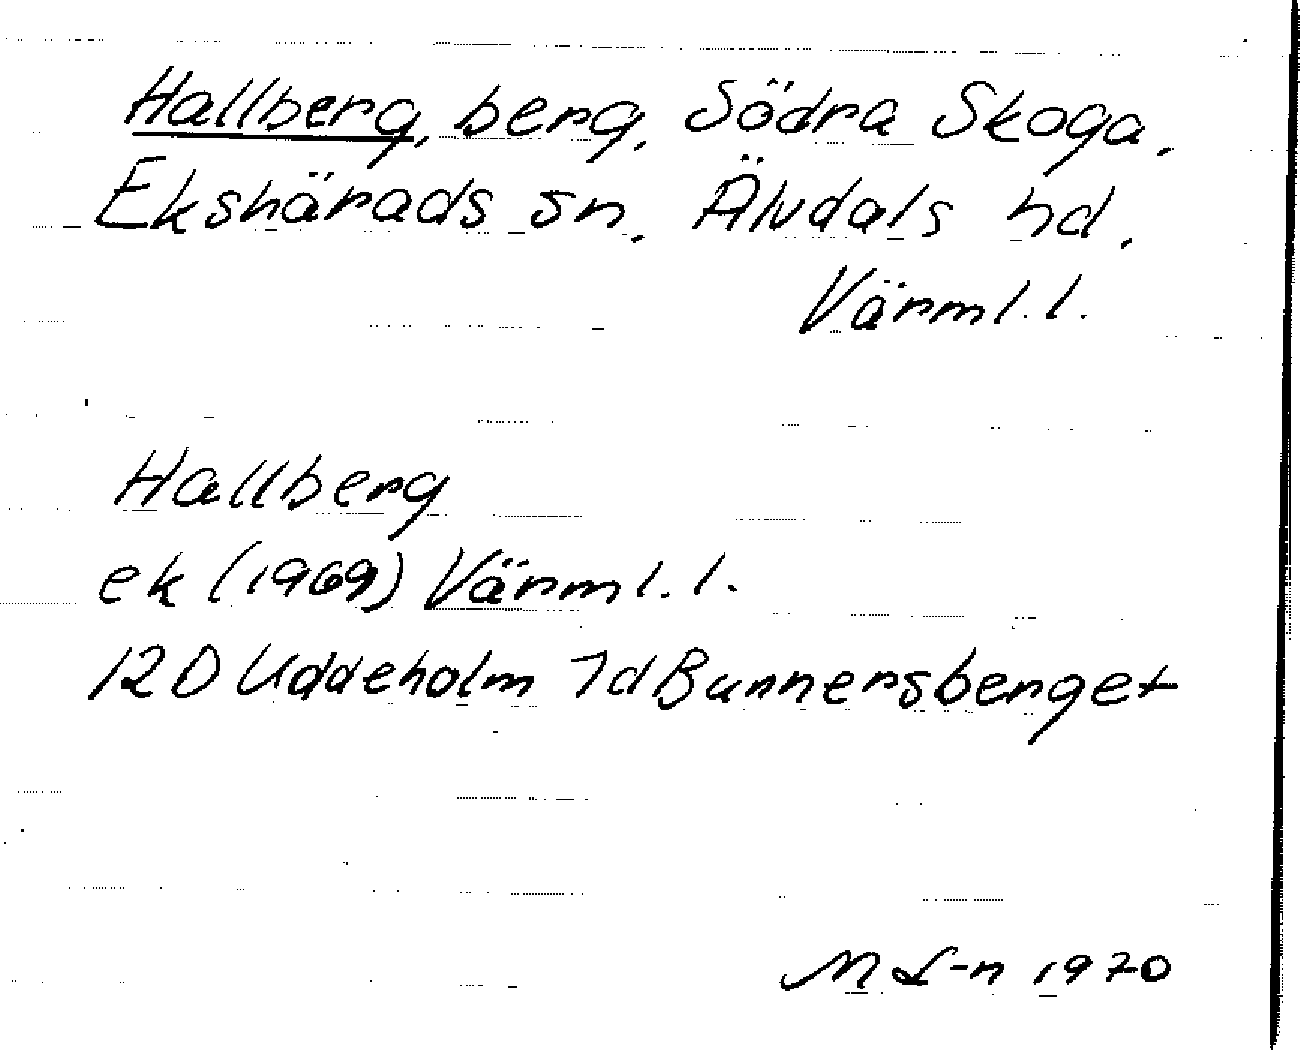 Hallberg, berg, Södra Skoga,
Ekshärads sn, Älvdals hd,
Värml. l.
Hallberg
ek (1969) Värml. l.
12D Uddeholm 7d Bunnersberget
M L-n 1970